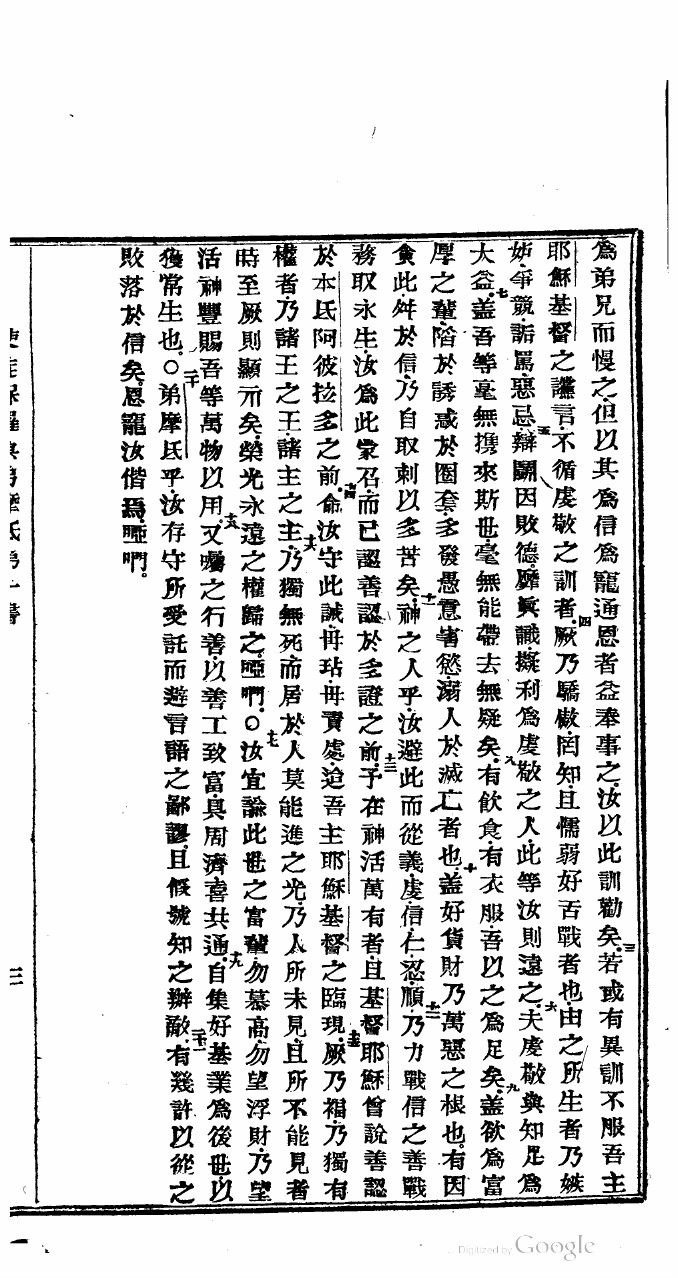 爲弟兄而慢之但以其爲信爲寵通恩者益奉事之汝以此訓勸矣三若或有異訓不服吾主
耶穌基督之讜言不循虔敬之訓者四厥乃驕傲罔知且懦弱好舌戰者也由之所生者乃嫉
妒爭競詬駡惡忌五辯鬬因敗德靡眞識擬利爲虔敬之人此等汝則遠之六夫虔敬與知足爲
大益七蓋吾等毫無攜來斯世毫無能帶去無疑矣八有飲食有衣服吾以之爲足矣九蓋欲爲富
厚之輩陷於誘惑於圈套多發愚意害慾溺人於滅亡者也十蓋好貨財乃萬惡之根也有因
貪此舛於信乃自取刺以多苦矣十一神之人乎汝避此而從義虔信仁忍順十二乃力戰信之善戰
務取永生汝爲此蒙召而已認善認於多證之前十三予在神活萬有者且基督耶穌曾說善認
於本氐阿彼拉多之前十四命汝守此誡毋玷毋責處迨吾主耶穌基督之臨現十五厥乃福乃獨有
權者乃諸王之王諸主之主十六乃獨無死而居於人莫能進之光乃人所未見且所不能見者
時至厥則顯示矣榮光永遠之權歸之啞們〇十七汝宜諭此世之富輩勿慕高勿望浮財乃望
活神豐賜吾等萬物以用十八又囑之行善以善工致富具周濟喜共通十九自集好基業爲後世以
獲常生也〇二十弟摩氐乎汝存守所受託而避言語之鄙謬且假號知之辦敵二十一有幾許以從之
敗落於信矣恩寵汝偕焉啞們
使徒保羅與弟摩氐第一書
三
Digitized by Google